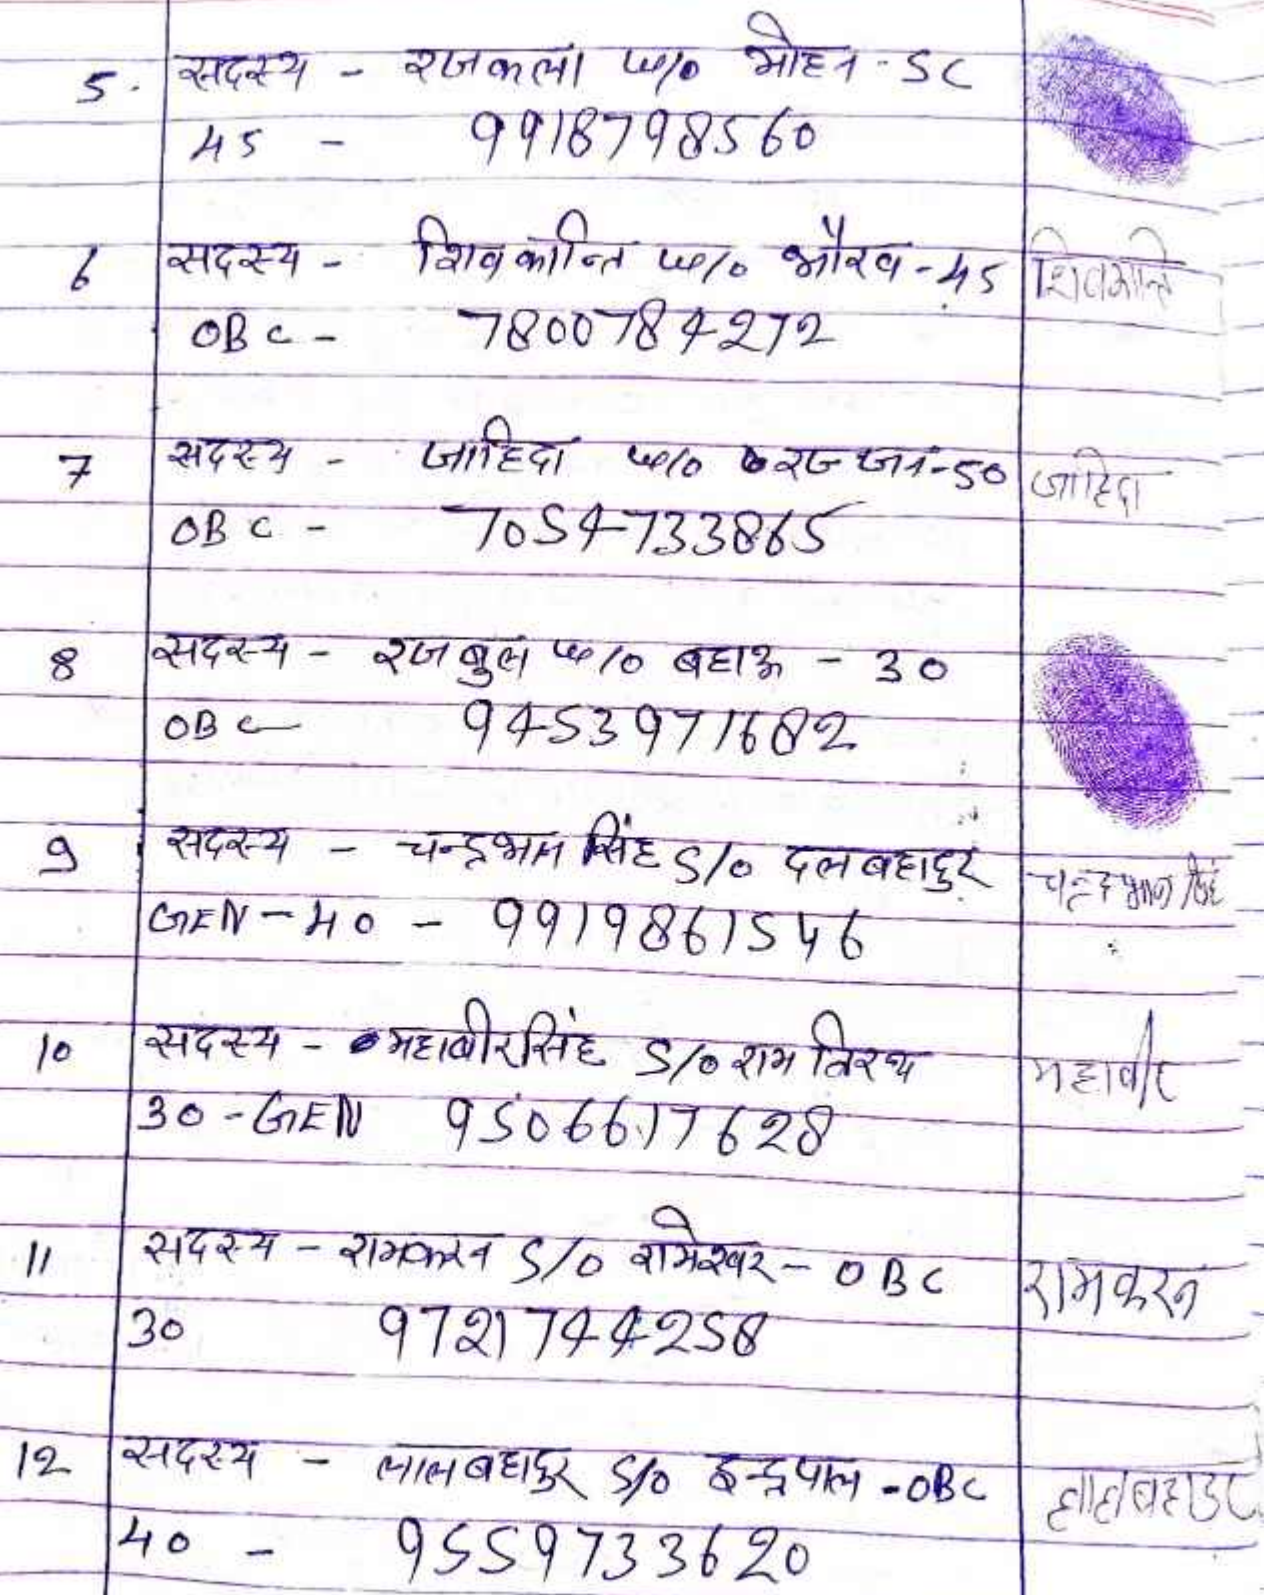 5. सदस्य - रजकला w/o मोहन - SC
45 - 9918798560
6 सदस्य - शिवकान्ति w/o भौरव - 45 शिवकान्ति
OBC - 7800784272
7 सदस्य - जाहिदा w/o रज्जन - 50 जाहिदा
OBC - 7054733865
8 सदस्य - रजबुल w/o बहाऊ - 30
OBC 9453971682
9 सदस्य - चन्द्रभान सिंह S/o दलबहादुर चन्द्रभान सिंह
GEN - 40 - 9919861546
10 सदस्य - महाबीर सिंह S/o राम तिरथ महावीर
30 - GEN 9506617628
11 सदस्य - रामकरन S/o रामेश्वर - OBC रामकरन
30 9721744258
12 सदस्य - लालबहादुर S/o इन्द्रपाल - OBC लालबहादुर
40 - 9559733620